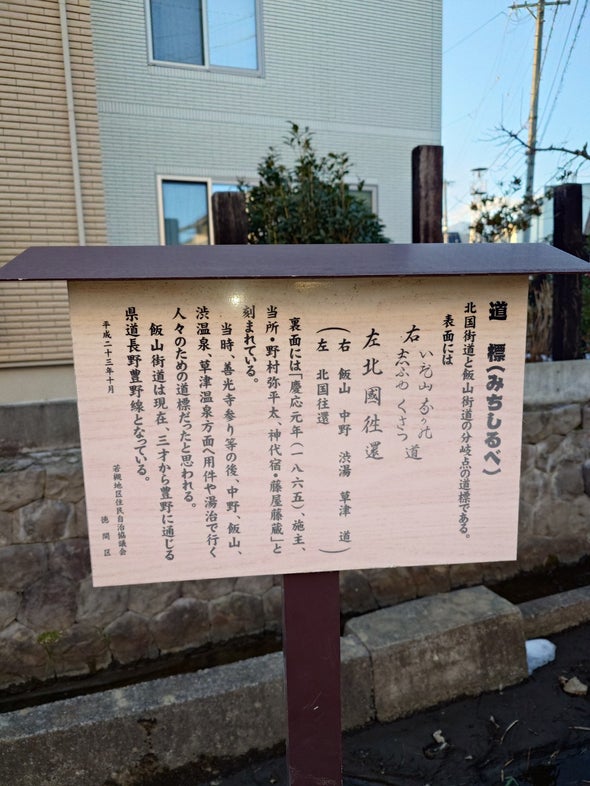 道標(みちしるべ)
北国街道と飯山街道の分岐点の道標である。
表面には
右 いひ山 なかの
志ぶゆ くさつ 道
左 北國往還
(右 飯山 中野 渋湯 草津 道)
(左 北国往還)
裏面には「慶応元年(一八六五)、施主、
当所・野村弥平太、神代宿・藤屋藤蔵」と
刻まれている。
当時、善光寺参り等の後、中野、飯山、
渋温泉、草津温泉方面へ用件や湯治で行く
人々のための道標だったと思われる。
飯山街道は現在、三才から豊野に通じる
県道長野豊野線となっている。
平成二十三年十月
若槻地区住民自治協議会
徳間区